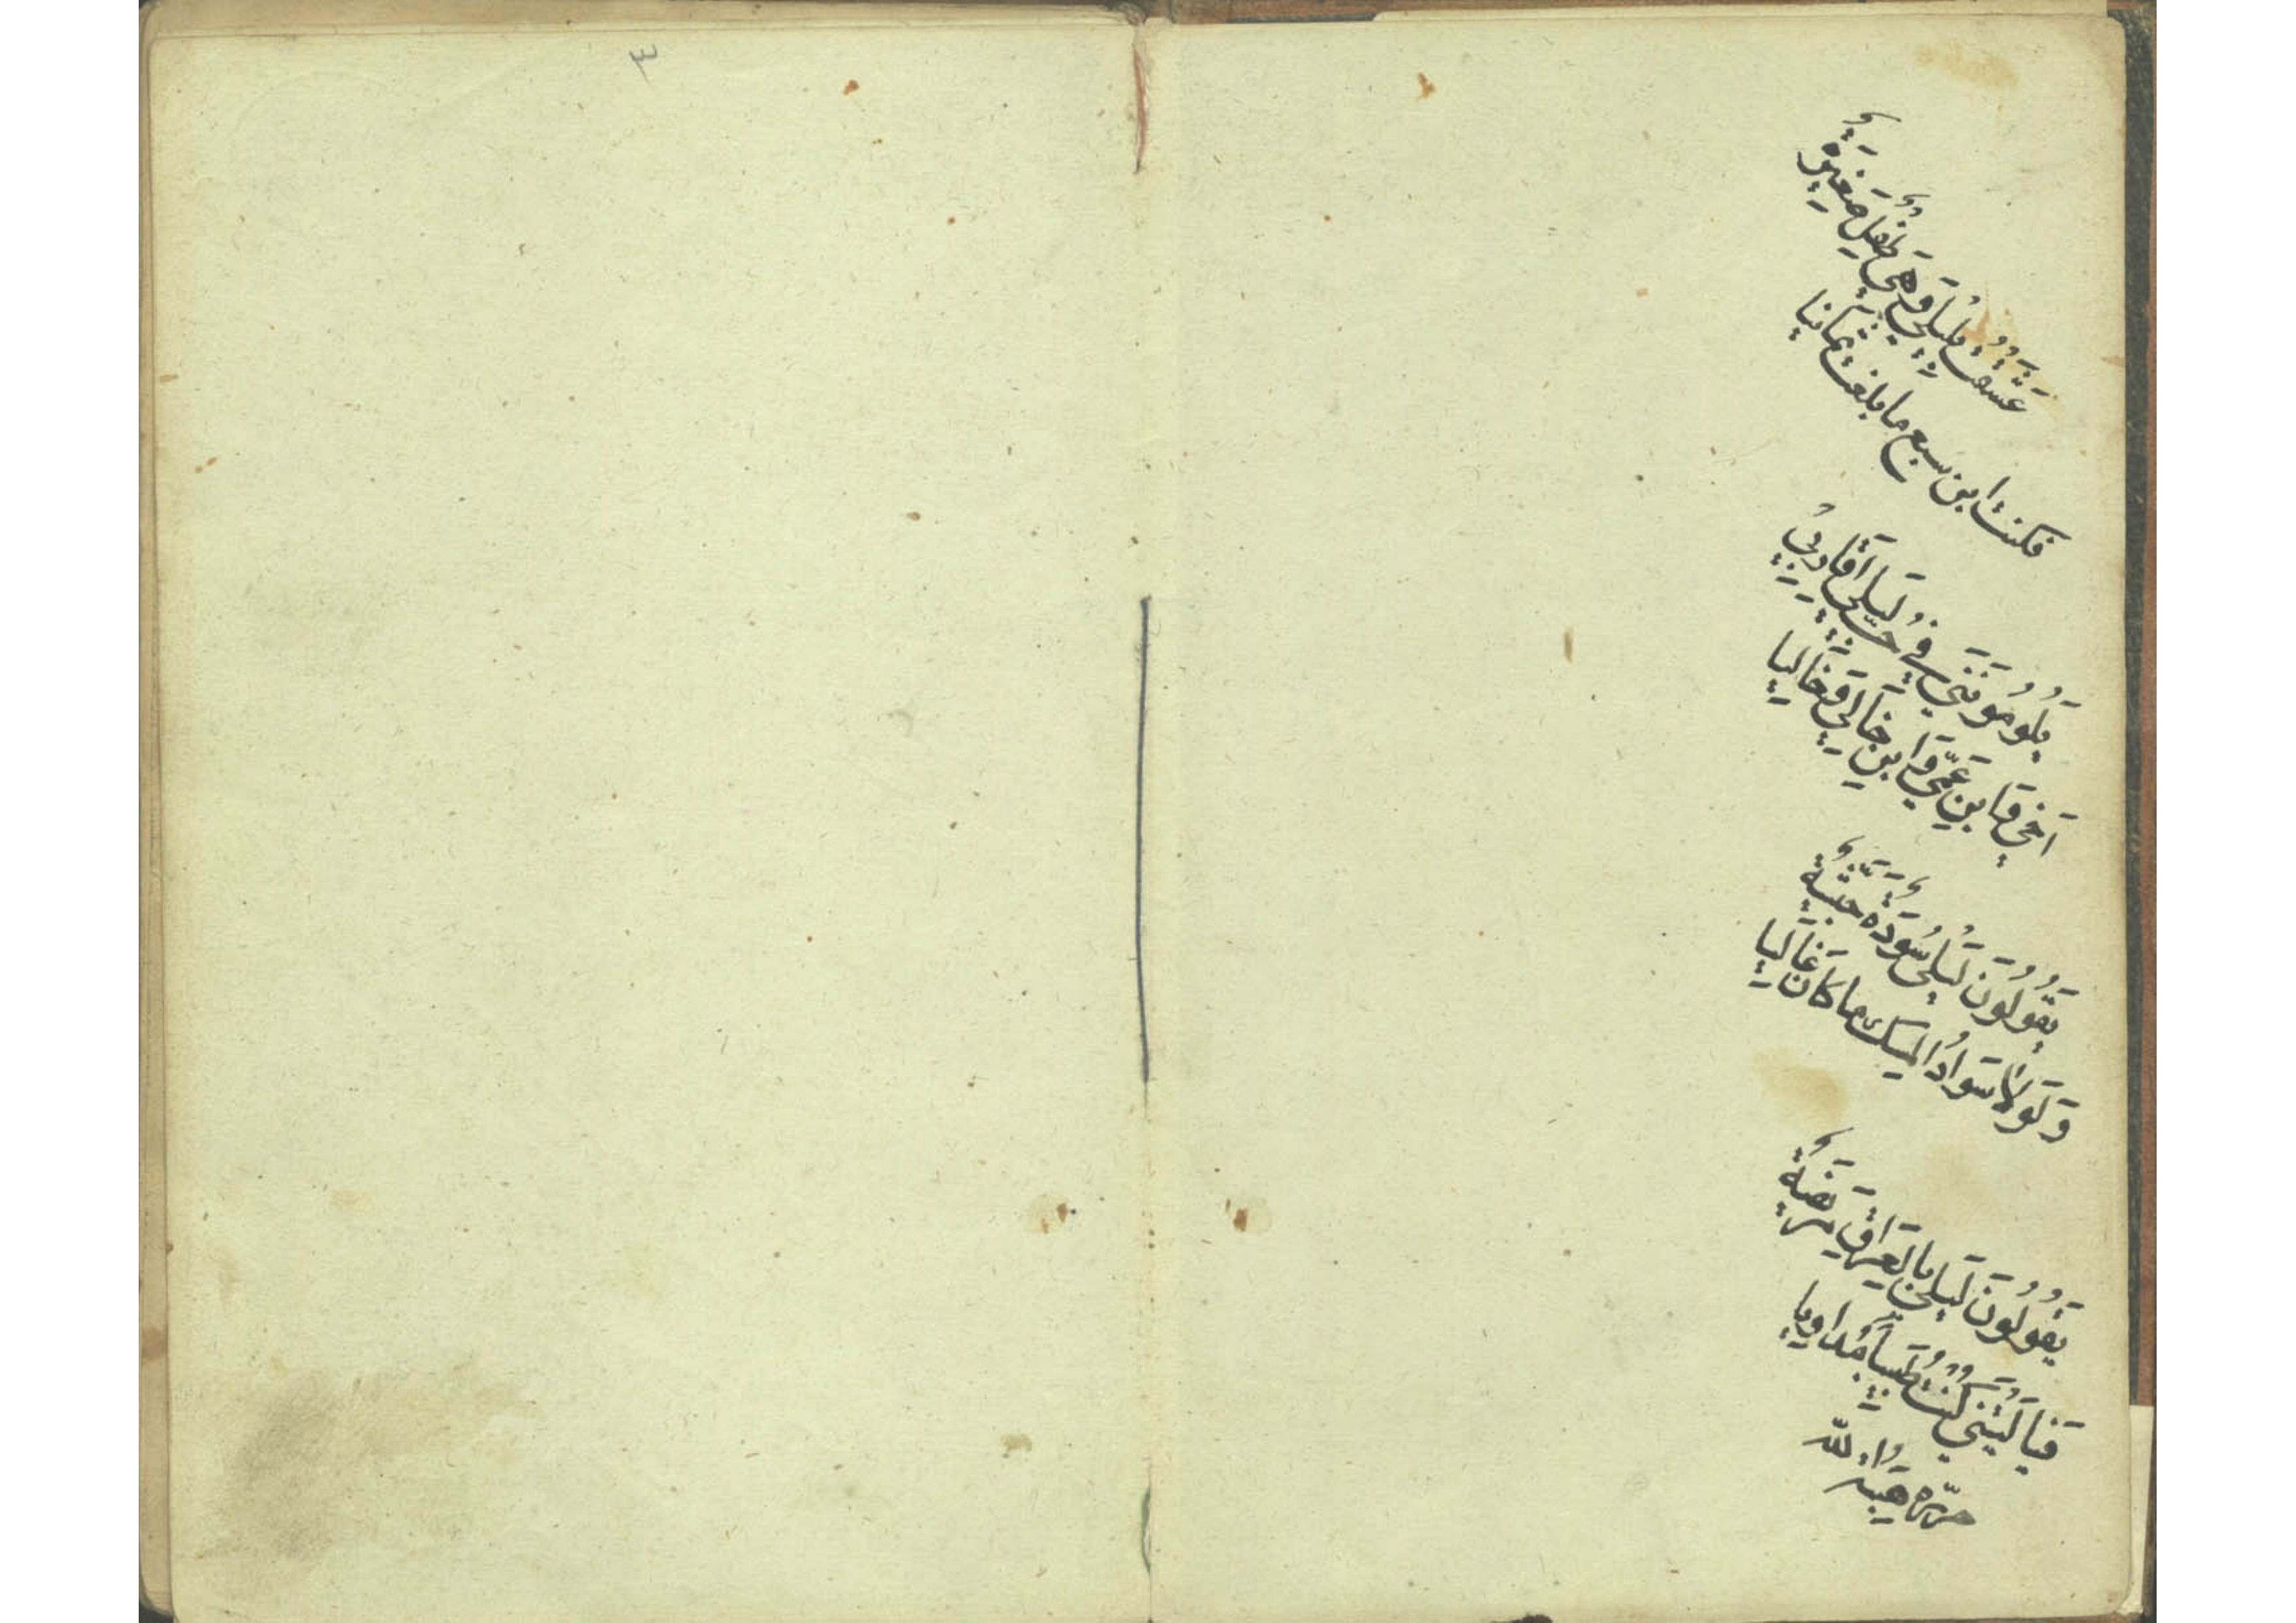 ٣
عَشَقْتُ لَيْلَى وَهِيَ طِفْلٌ صَغِيرَةٌ
فكنت ابن سبع ما بلغت ثمانيا
يَلُومُونَنِي فِي حُبِّ لَيْلَى أَقَارِبِي
اَخِي وَابنِ عَمِّي وَابنِ خَالِي وَخَالِيَا
يَقُولُونَ لَيْلَى سَوْدَةٌ حَبَشِيَّةٌ
وَلَوْلَا سَوَادُ المِسْكِ مَا كَانَ غَالِيَا
يَقُولُونَ لَيْلَى بِالعِرَاقِ مَرِيضَةٌ
فَيَا لَيْتَنِي كُنْتُ طَبِيبًا مُدَاوِيَا
حرّره هِبَةُ اللّه